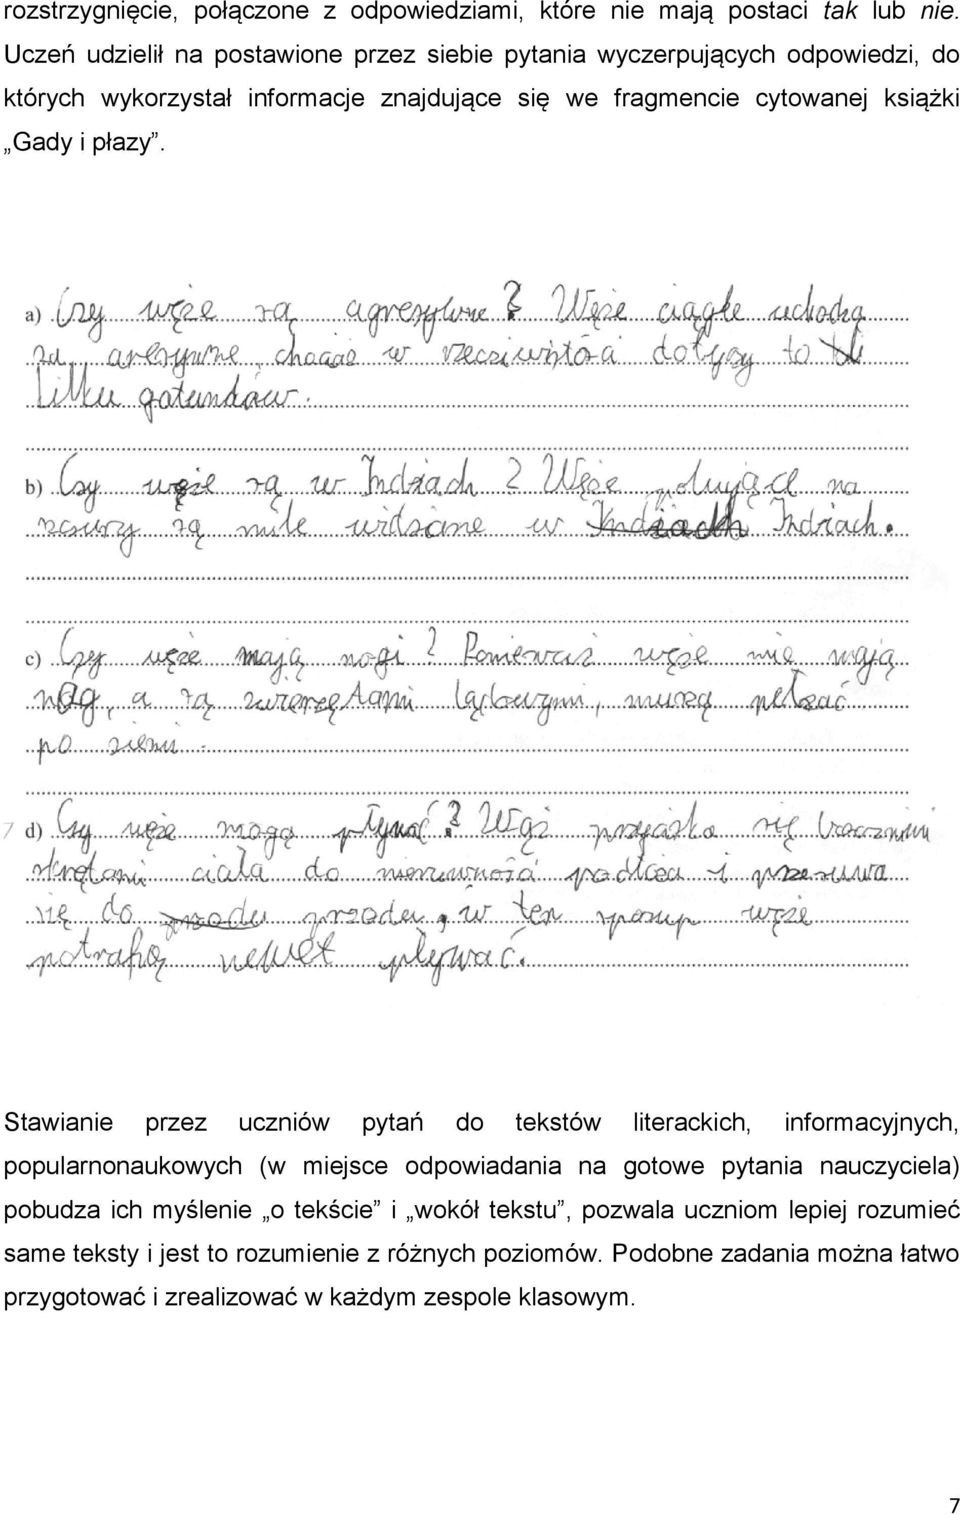 rozstrzygnięcie, połączone z odpowiedziami, które nie mają postaci tak lub nie.
Uczeń udzielił na postawione przez siebie pytania wyczerpujących odpowiedzi, do
których wykorzystał informacje znajdujące się we fragmencie cytowanej książki
„Gady i płazy”.
a) Czy węże są agresywne? Węże ciągle uchodzą
za aresywne, chociaż w rzeciwistości dotyczy to
kilku gatunków.
b) Czy węże są w Indiach? Węże polujące na
szczury są mile widziane w Indiach Indiach.
c) Czy węże mają nogi? Ponieważ węże nie mają
nóg, a są zwierzętami lądowymi, muszą pełzać
po ziemi.
7 d) Czy węże mogą pływać? Wąż przyciska się bocznymi
skrętami ciała do nierówności podłoża i przesuwa
się do przodu, w ten sposup węże
potrafią newet pływać.
Stawianie przez uczniów pytań do tekstów literackich, informacyjnych,
popularnonaukowych (w miejsce odpowiadania na gotowe pytania nauczyciela)
pobudza ich myślenie „o tekście” i „wokół tekstu”, pozwala uczniom lepiej rozumieć
same teksty i jest to rozumienie z różnych poziomów. Podobne zadania można łatwo
przygotować i zrealizować w każdym zespole klasowym.
7